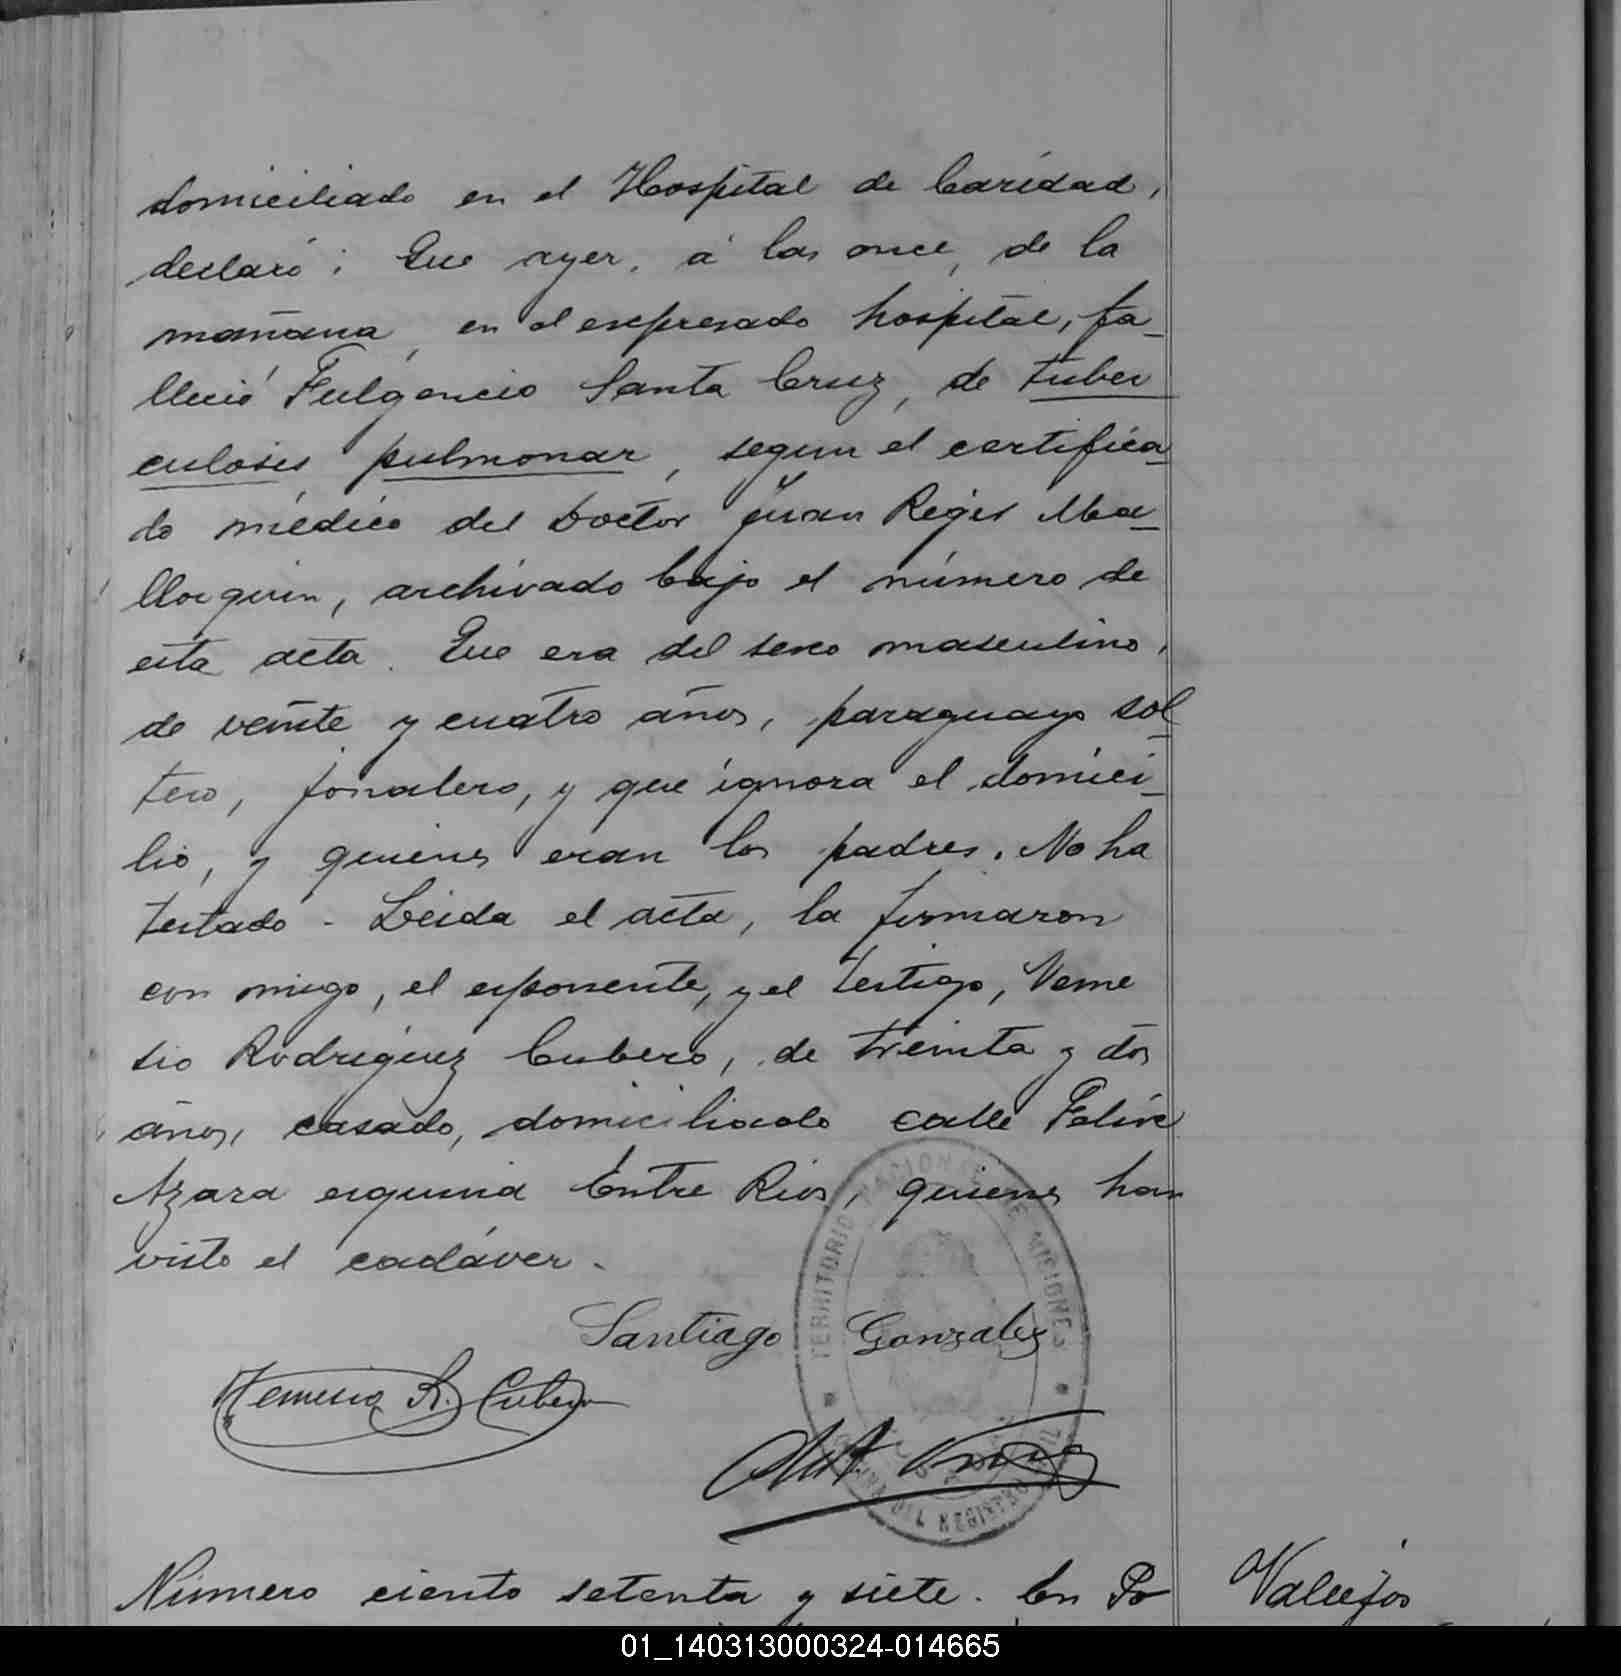 domiciliado en el Hospital de Caridad,
declaró: Que ayer, á las once, de la
mañana, en el expresado hospital, fa-
lleció Fulgencio Santa Cruz, de tuber
culosis pulmonar, segun el certifica-
do médico del Doctor Juan Regis Ma-
llorquin, archivado bajo el número de
esta acta. Que era del sexo masculino,
de veinte y cuatro años, paraguayo sol-
tero, jornalero, y que ignora el domici-
lio, y quienes eran los padres. No ha
testado - Leida el acta, la firmaron
con migo, el exponente, y el testigo, Neme
sio Rodriguez Cubero, de treinta y dos
años, casado, domiciliado calle Felix
Azara esquina Entre Rios, quienes han
visto el cadáver.
TERRITORIO NACIONAL DE MISIONES
REGISTRO CIVIL
Santiago Gonzalez
Nemesio R. Cubero
Número ciento setenta y siete. En Po
Vallejos
01_140313000324-014665